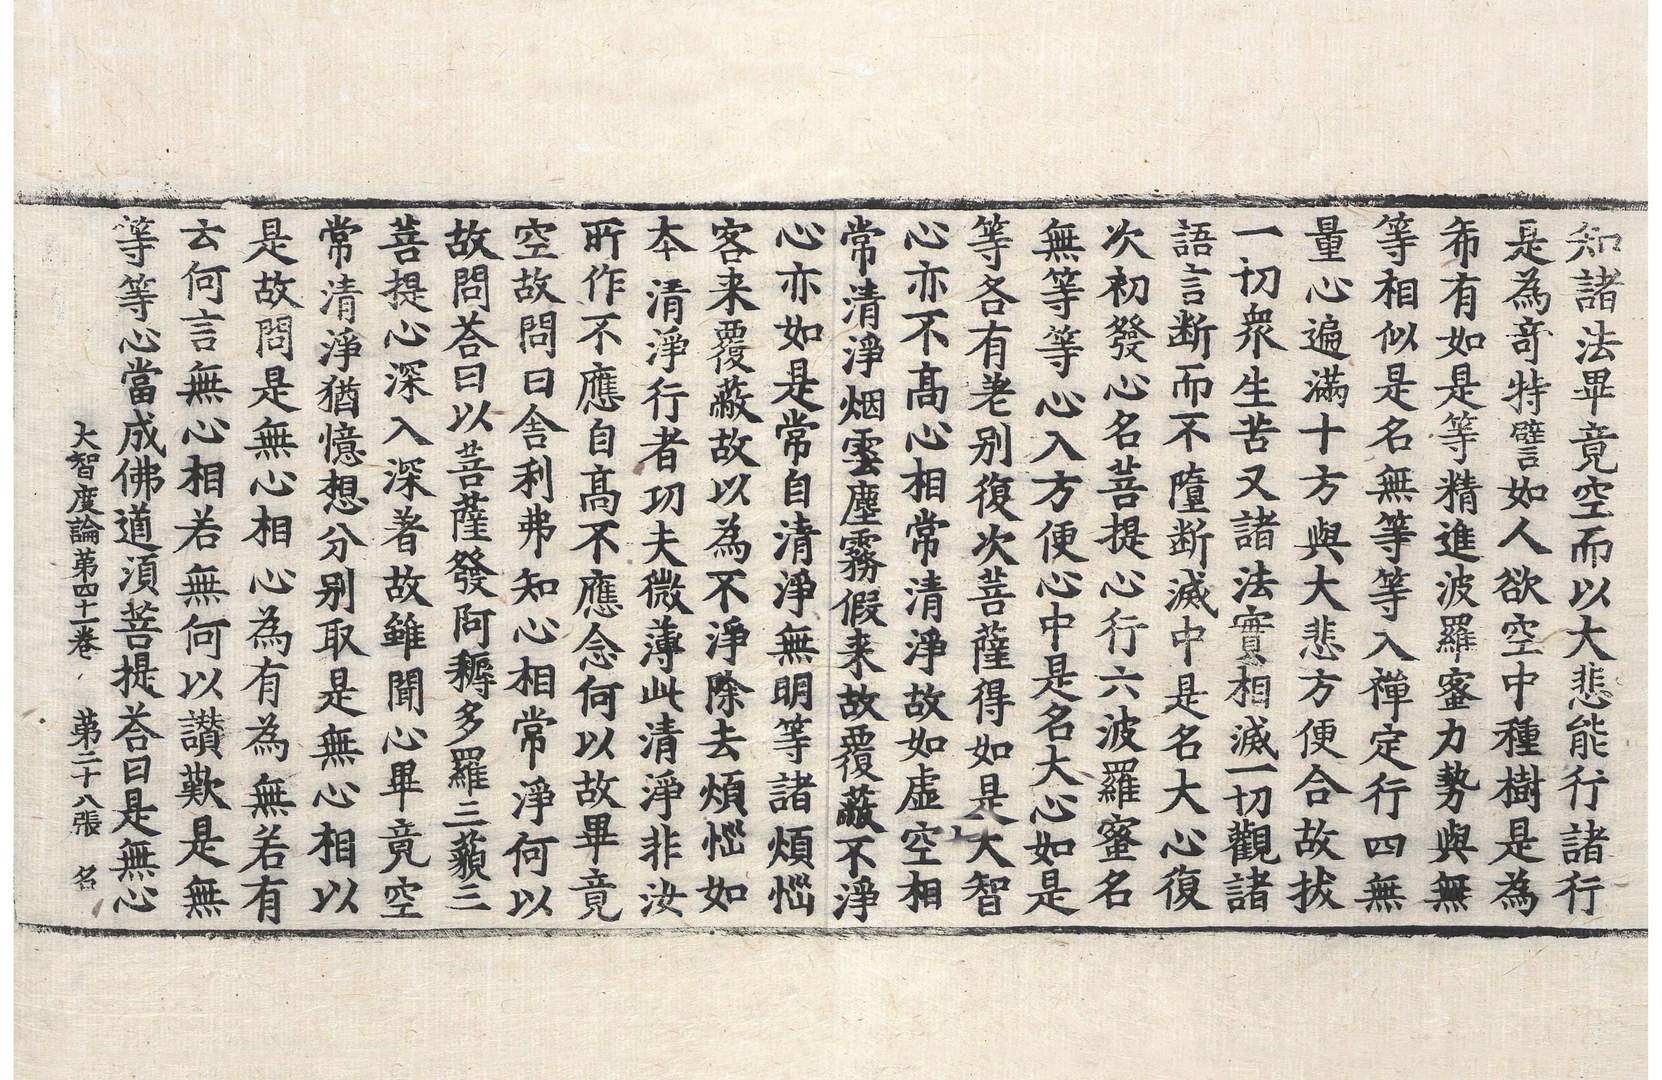 知諸法畢竟空而以大悲能行諸行
是為竒特譬如人欲空中種樹是為
希有如是等精進波羅蜜力勢與無
等相似是名無等等等入禪定行四無
量心遍滿十方與大悲方便合故拔
一切衆生苦又諸法實相滅一切觀諸
語言斷而不墮斷滅中是名大心復
次初發心名菩提心行六波羅蜜名
無等等心入方便心中是名大心如是
等各有差别復次菩薩得如是大智
心亦不髙心相常清淨故如虛空相
常清淨烟雲塵霧假来故覆蔽不淨
心亦如是常自清淨無明等諸煩惱
客来覆蔽故以為不淨除去煩惱如
本清淨行者功夫微薄此清淨非汝
所作不應自髙不應念何以故畢竟
空故問曰舍利弗知心相常淨何以
故問荅曰以菩薩發阿耨多羅三藐三
菩提心深入深著故雖聞心畢竟空
常清淨猶憶想分别取是無心相以
是故問是無心相心為有為無若有
云何言無心相若無何以讃歎是無
等等心當成佛道湏菩提荅曰是無心
大智度論第四十一卷　第二十八張　名